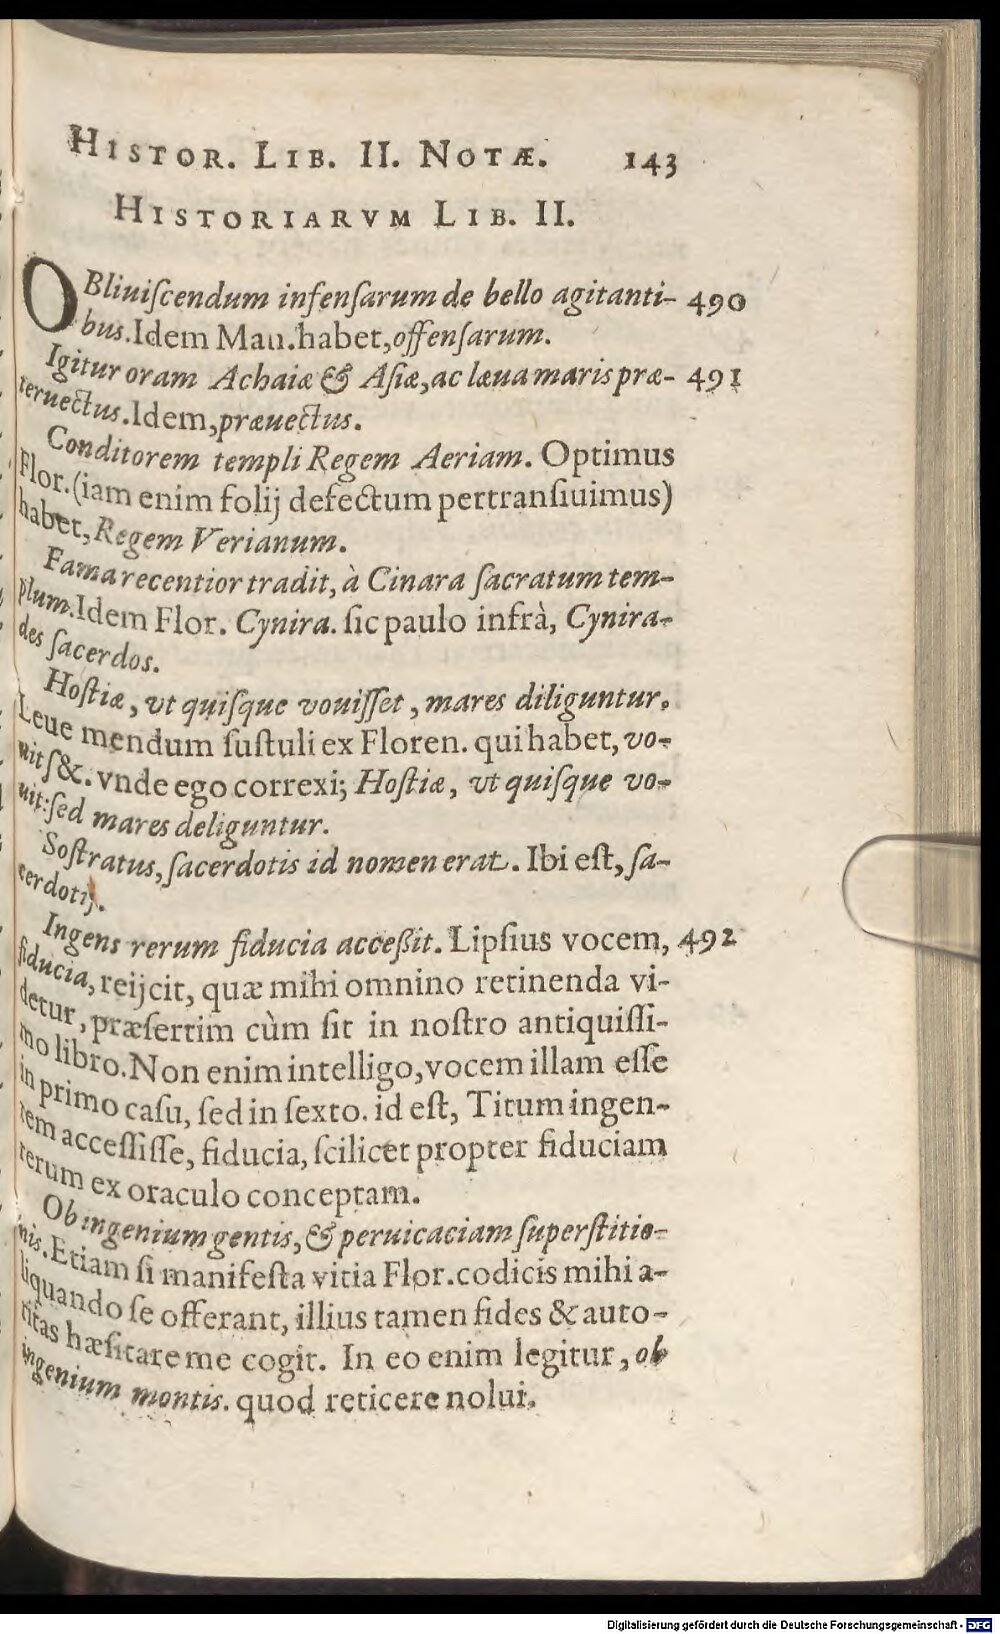 HISTOR. LIB. II. NOTÆ. 143
HISTORIARVM LIB. II.
OBliuiſcendum infenſarum de bello agitanti- 490
bus. Idem Mau. habet, offenſarum.
Igitur oram Achaiæ & Aſiæ, ac læua maris præ- 491
teruectus. Idem, præuectus.
Conditorem templi Regem Aeriam. Optimus
Flor. (iam enim folij defectum pertranſiuimus)
habet, Regem Verianum.
Fama recentior tradit, à Cinara ſacratum tem-
plum. Idem Flor. Cynira. ſic paulo infrà, Cynira-
des ſacerdos.
Hoſtiæ, vt quiſque vouiſſet, mares diliguntur.
Leue mendum ſuſtuli ex Floren. qui habet, vo-
uit ſ&. vnde ego correxi; Hoſtiæ, vt quiſque vo-
uit: ſed mares deliguntur.
Soſtratus, ſacerdotis id nomen erat. Ibi eſt, ſa-
cerdotij.
Ingens rerum fiducia acceßit. Lipſius vocem, 492
fiducia, reijcit, quæ mihi omnino retinenda vi-
detur, præſertim cùm ſit in noſtro antiquiſſi-
mo libro. Non enim intelligo, vocem illam eſſe
in primo caſu, ſed in ſexto. id eſt, Titum ingen-
tem acceſſiſſe, fiducia, ſcilicet propter fiduciam
rerum ex oraculo conceptam.
Ob ingenium gentis, & peruicaciam ſuperſtitio-
nis. Etiam ſi manifeſta vitia Flor. codicis mihi a-
liquando ſe offerant, illius tamen fides & auto-
ritas hæſitare me cogit. In eo enim legitur, ob
ingenium montis. quod reticere nolui.
Digitalisierung gefördert durch die Deutsche Forschungsgemeinschaft - DFG